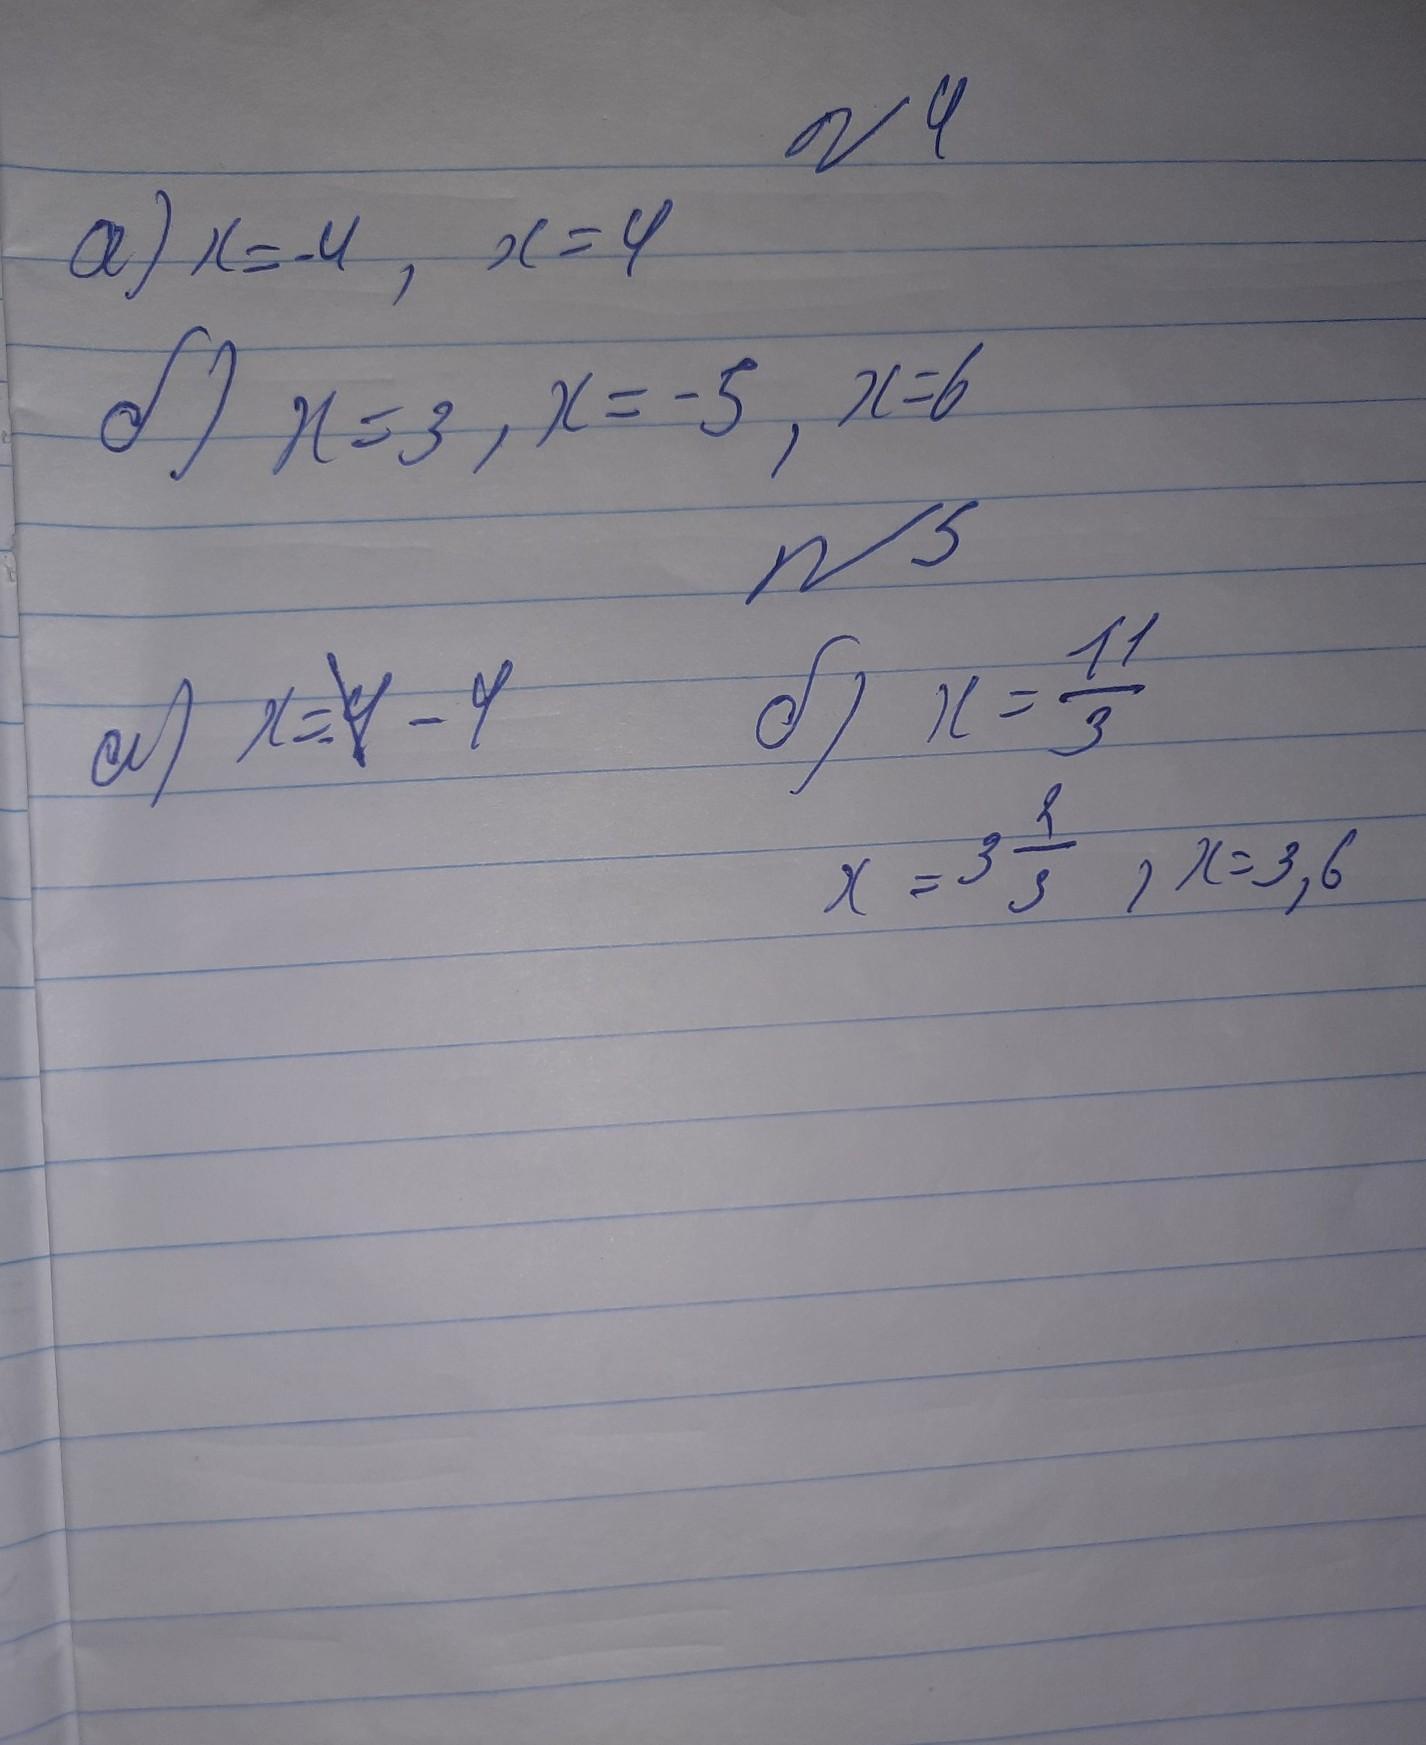 №4
а) x=-4, x=4
б) x=3, x=-5, x=6
№5
а) x= -4 б) x = 11/3
x = 3 2/3, x=3,6